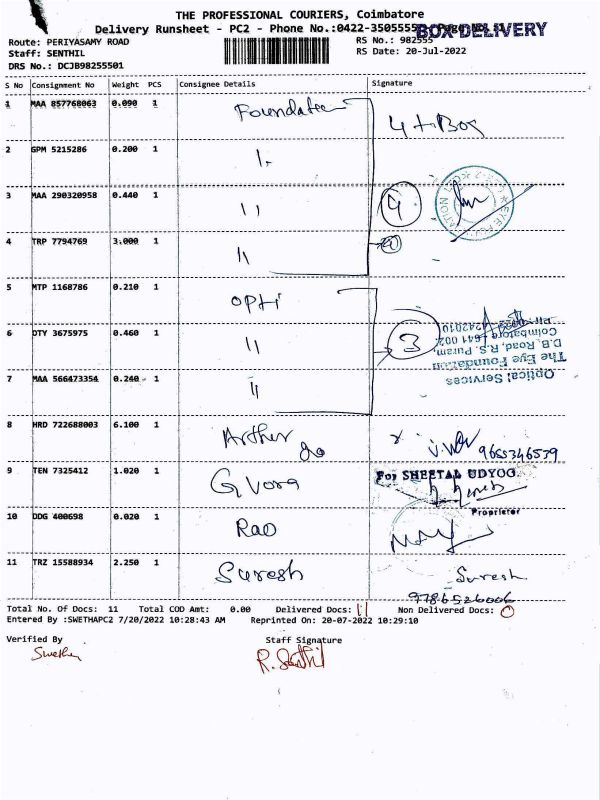 THE PROFESSIONAL COURIERS, Coimbatore
Delivery Runsheet - PC2 - Phone No.:0422-3505555
BOX DELIVERY
Route: PERIYASAMY ROAD
RS No.: 982555
Staff: SENTHIL
RS Date: 20-Jul-2022
DRS No.: DCJB98255501
S No Consignment No Weight PCS Consignee Details Signature
1 MAA 857768063 0.090 1 Foundation 4 + Box
2 GPM 5215286 0.200 1 "
3 MAA 290320958 0.440 1 " 4
4 TRP 7794769 3.000 1 "
5 MTP 1168786 0.210 1 opti
6 DTY 3675975 0.460 1 " 3
7 MAA 566473354 0.240 1 "
Optical Services
The Eye Foundation
D.B. Road, R.S. Puram,
Coimbatore - 641 002
PH: 4242010
8 HRD 722688003 6.100 1 Arther 9655346579
9 TEN 7325412 1.020 1 G Vora For SHEETAL UDYOG
Proprietor
10 DDG 400698 0.020 1 Rao
11 TRZ 15588934 2.250 1 Suresh Suresh
9786526006
Total No. Of Docs: 11 Total COD Amt: 0.00 Delivered Docs: 11 Non Delivered Docs: 0
Entered By :SWETHAPC2 7/20/2022 10:28:43 AM Reprinted On: 20-07-2022 10:29:10
Verified By Staff Signature
R. Senthil